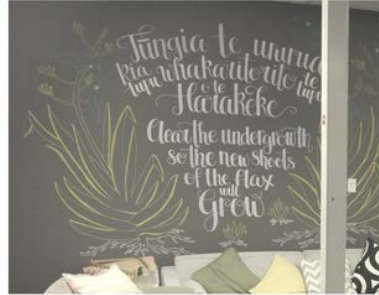 Tungia te ururua
kia whakaritorito te
tupu o te tupu
Harakeke
Clear the undergrowth
so the new shoots
of the flax
will
Grow